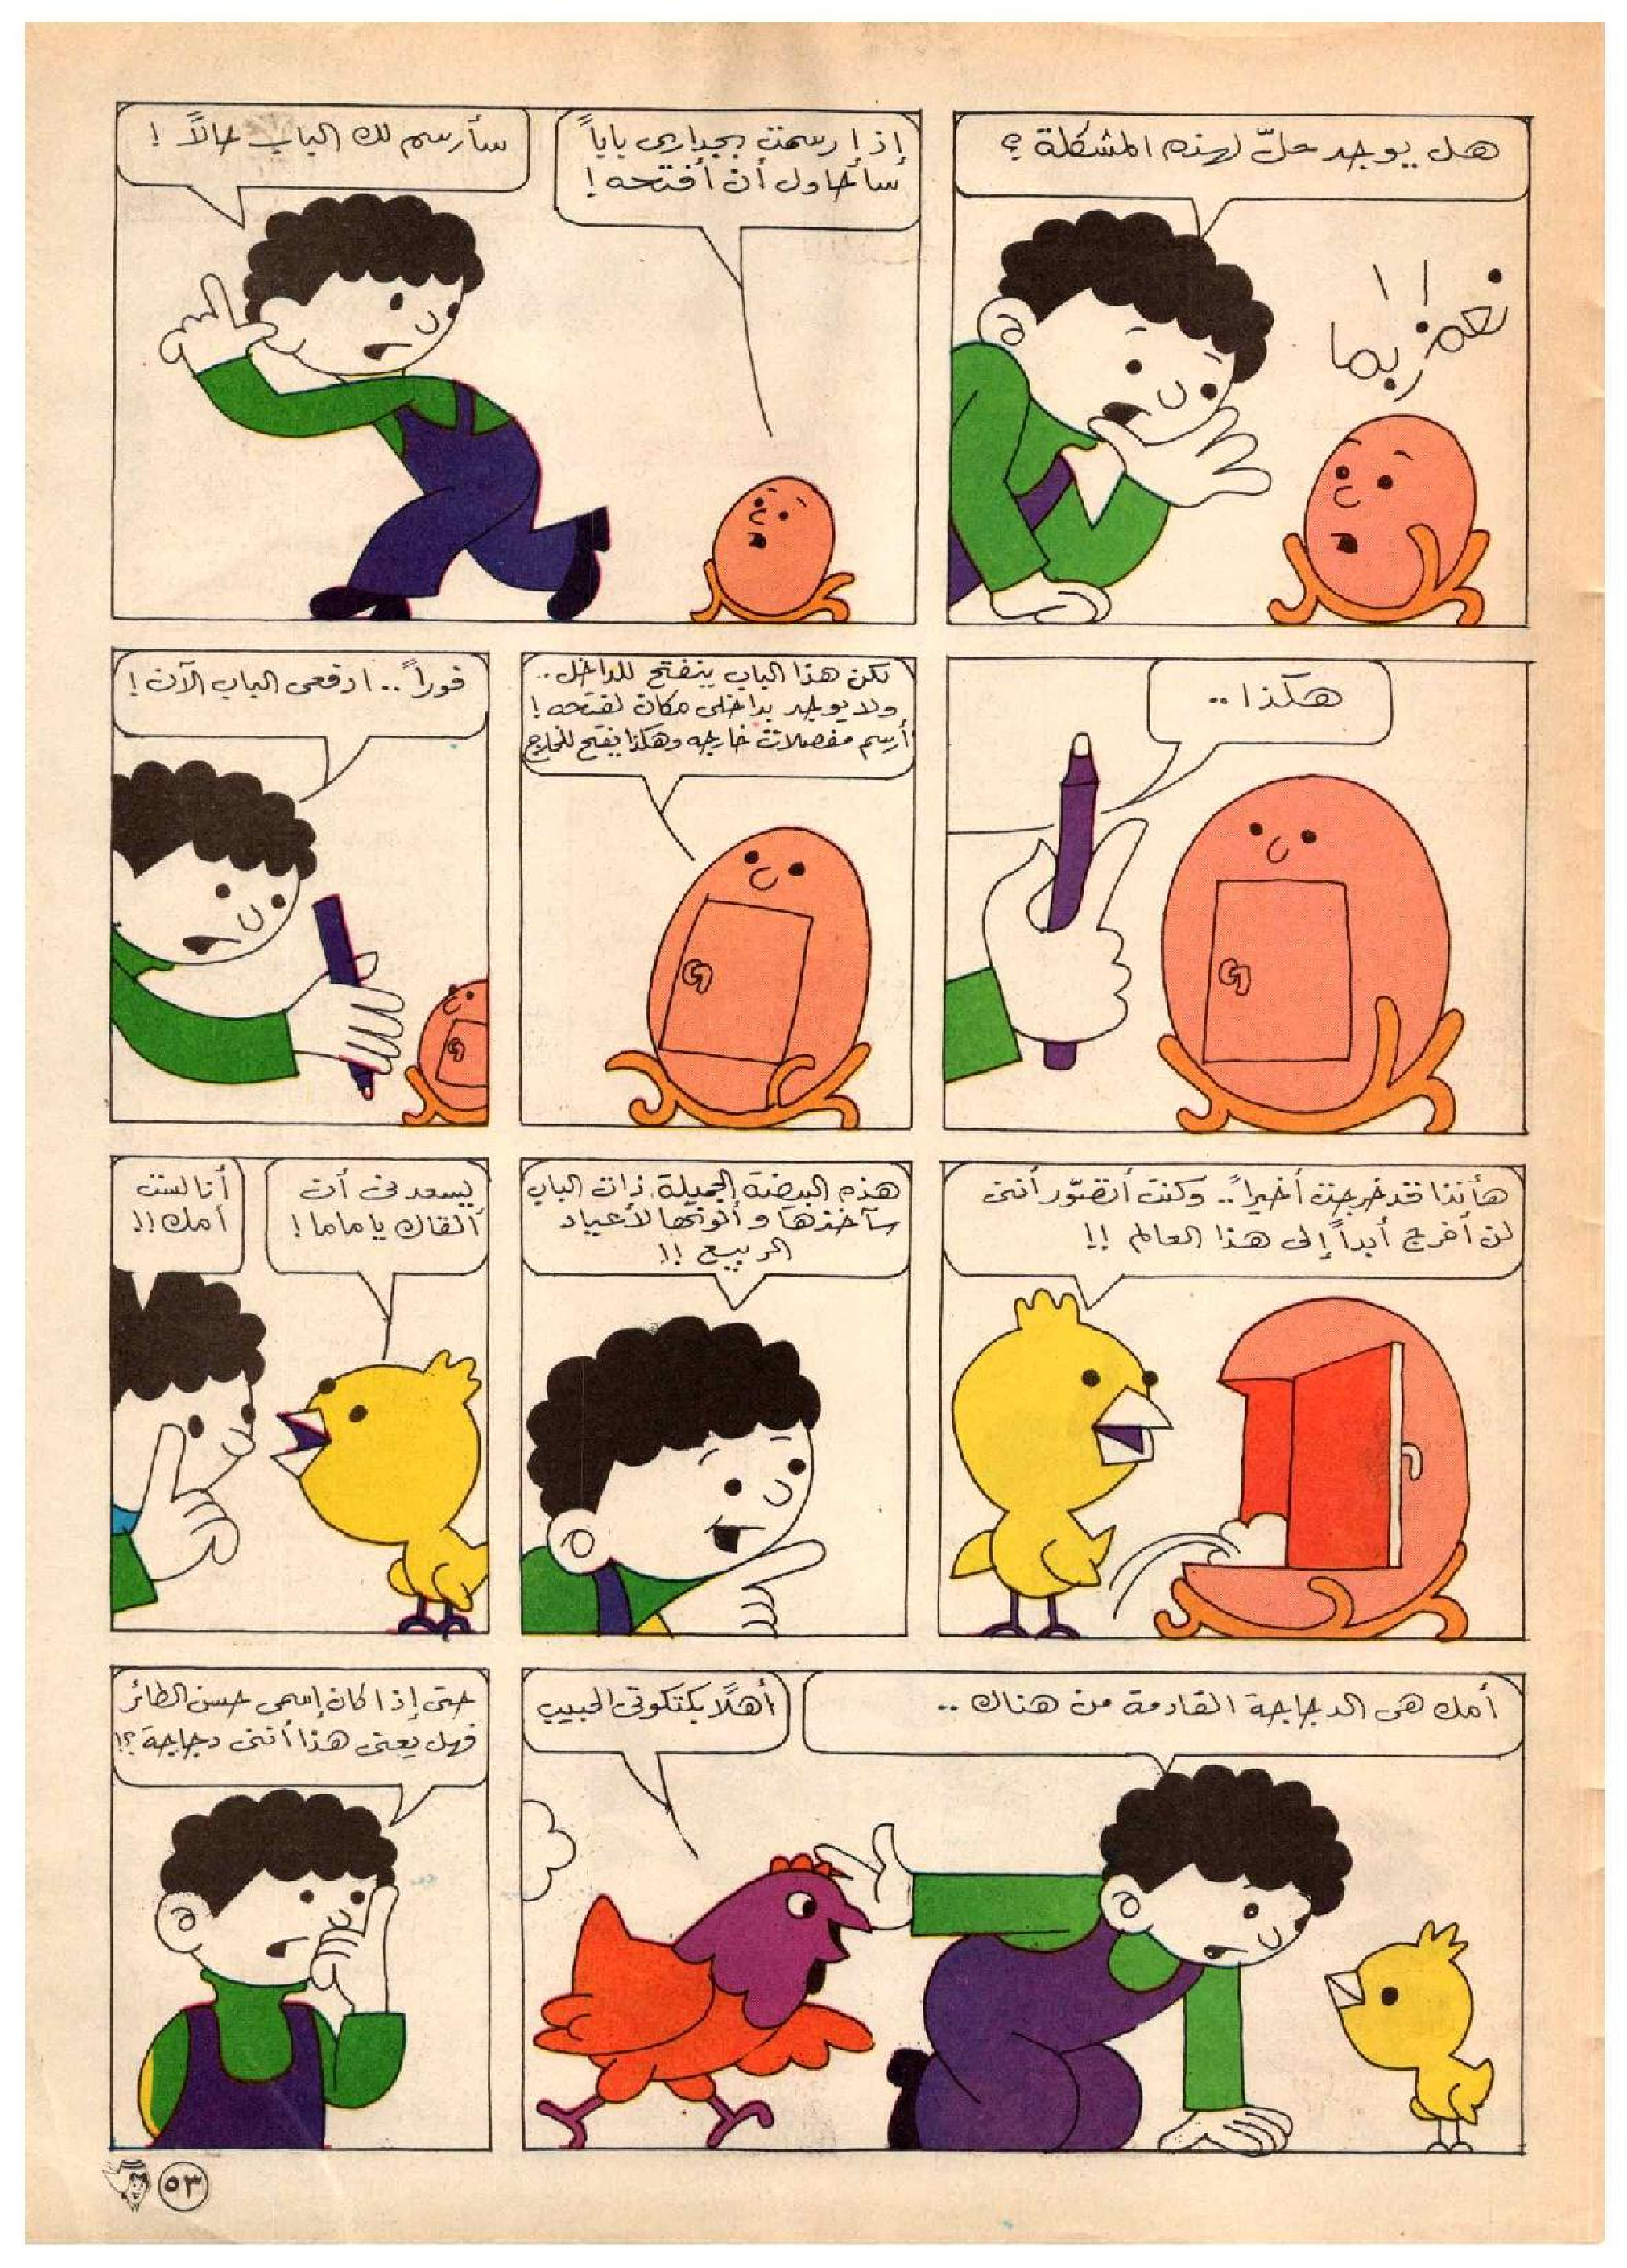 هل يوجد حلّ لهذه المشكلة ؟
نعم ربما !!
إذا رسمت بجدارى باباً
سأحاول أن أفتحه !
سأرسم لك الباب حالاً !
هكذا ..
لكن هذا الباب ينفتح للداخل ..
ولا يوجد بداخلى مكان لفتحه !
أرسم مفصلات خارجه وهكذا يفتح للخارج
فوراً .. ادفعى الباب الآن !
هأنذا قد خرجت أخيراً .. وكنت أتصوّر أننى
لن أخرج أبداً إلى هذا العالم !!
هذه البيضة الجميلة ذات الباب
سآخذها وألونها لأعياد
الربيع !!
يسعدنى أن
ألقاك يا ماما !
أنا لست
أمك !!
أمك هى الدجاجة القادمة من هناك ..
أهلًا بكتكوتى الحبيب
حتى إذا كان إسمى حسن الطائر
فهل يعنى هذا أننى دجاجة ؟!
٥٣